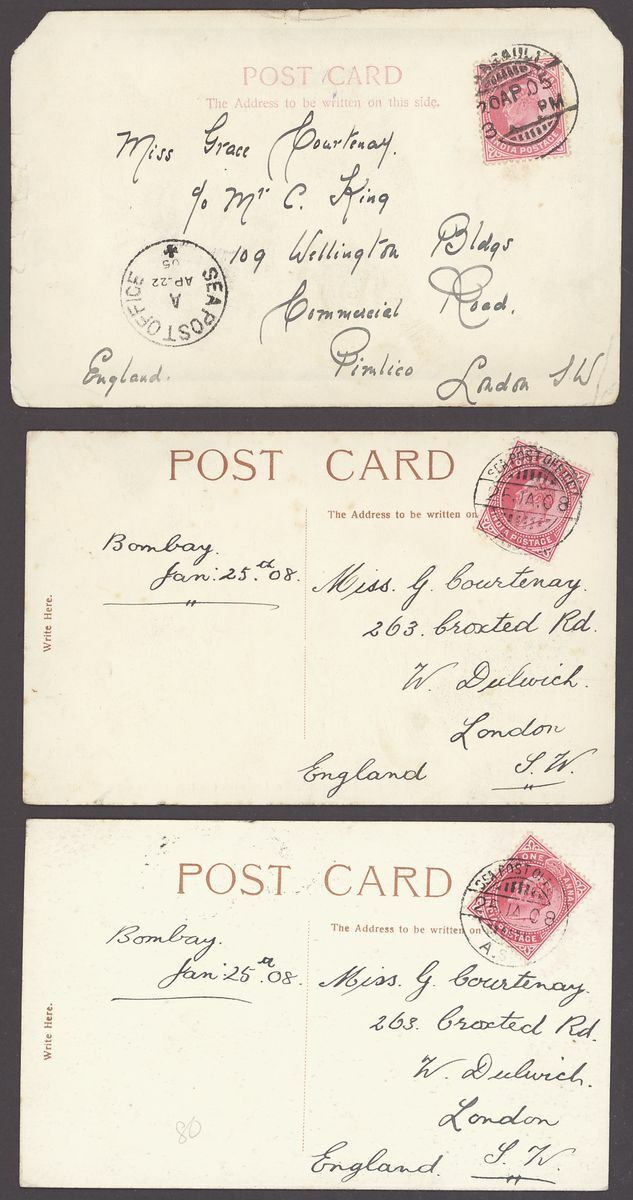 POST CARD
The Address to be written on this side.
20 AP. 05
PM
INDIA POSTAGE
Miss Grace Courtenay.
c/o Mr C. King
109 Wellington Bldgs
Commercial Road.
Pimlico
London SW
England.
SEA POST OFFICE
A
AP-22
05
POST CARD
The Address to be written on
SEA POST OFFICE
JA. 08
INDIA POSTAGE
Write Here.
Bombay.
Jan: 25.th 08.
Miss. G. Courtenay.
263. Croxted Rd.
W. Dulwich.
London
S. W.
England
POST CARD
The Address to be written on
ONE ANNA
SEA POST
JA 08
POSTAGE
A.
Write Here.
Bombay.
Jan: 25.th 08.
Miss. G. Courtenay.
263. Croxted Rd.
W. Dulwich.
London
S. W.
England.
80